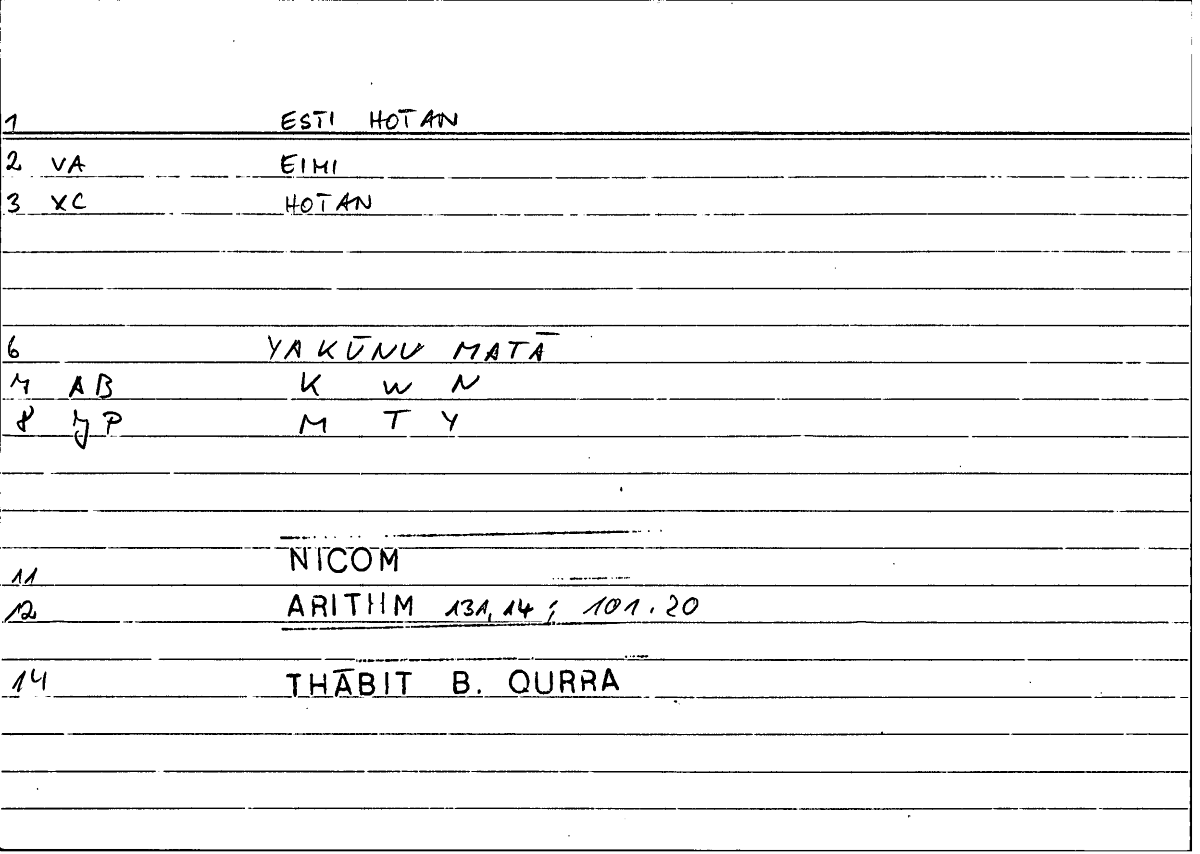 1 ESTI HOTAN
2 VA EIMI
3 XC HOTAN
6 YAKŪNU MATĀ
7 AB K W N
8 JP M T Y
11 NICOM
12 ARITHM 131,14; 101.20
14 THĀBIT B. QURRA